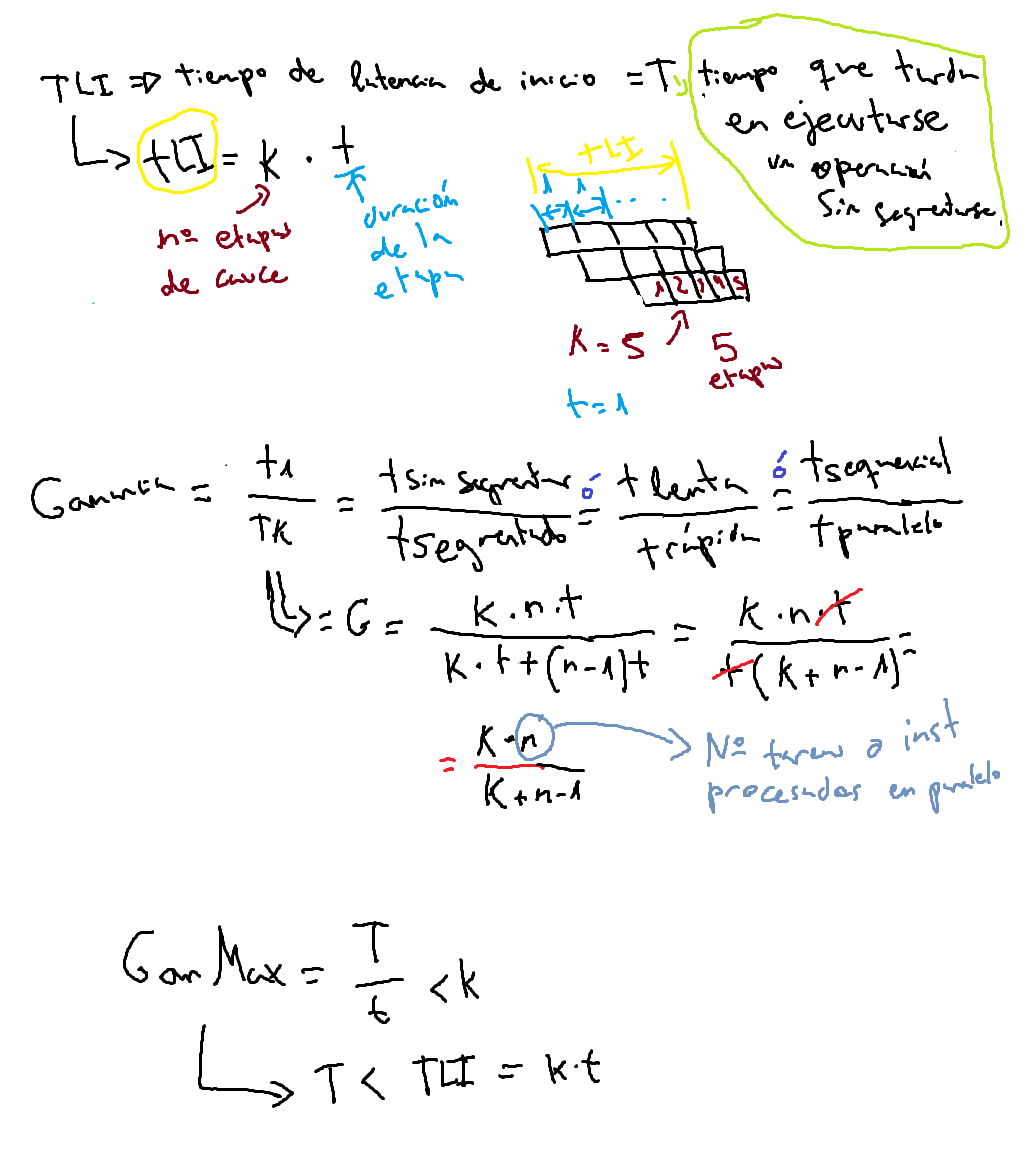 TLI ⇒ tiempo de latencia de inicio = T y tiempo que tarda
en ejecutarse
un operación
Sin segmentarse.
↳ tLI = k · t
nº etapas
de cauce
duración
de la
etapa
tLI
1 1 . . . .
1 2 3 4 5
K = 5
5
etapas
t = 1
Ganancia = t1 / TK = t sin segmentar / t segmentado ó = t lenta / t rápida ó = t sequencial / t paralelo
⇒ = G = K · n · t / K · t + (n-1)t = K · n · t / t(K + n - 1) =
= K · n / K + n - 1
Nº tareas o inst
procesadas en paralelo
Gan Max = T / t < k
↳ T < TLI = k · t